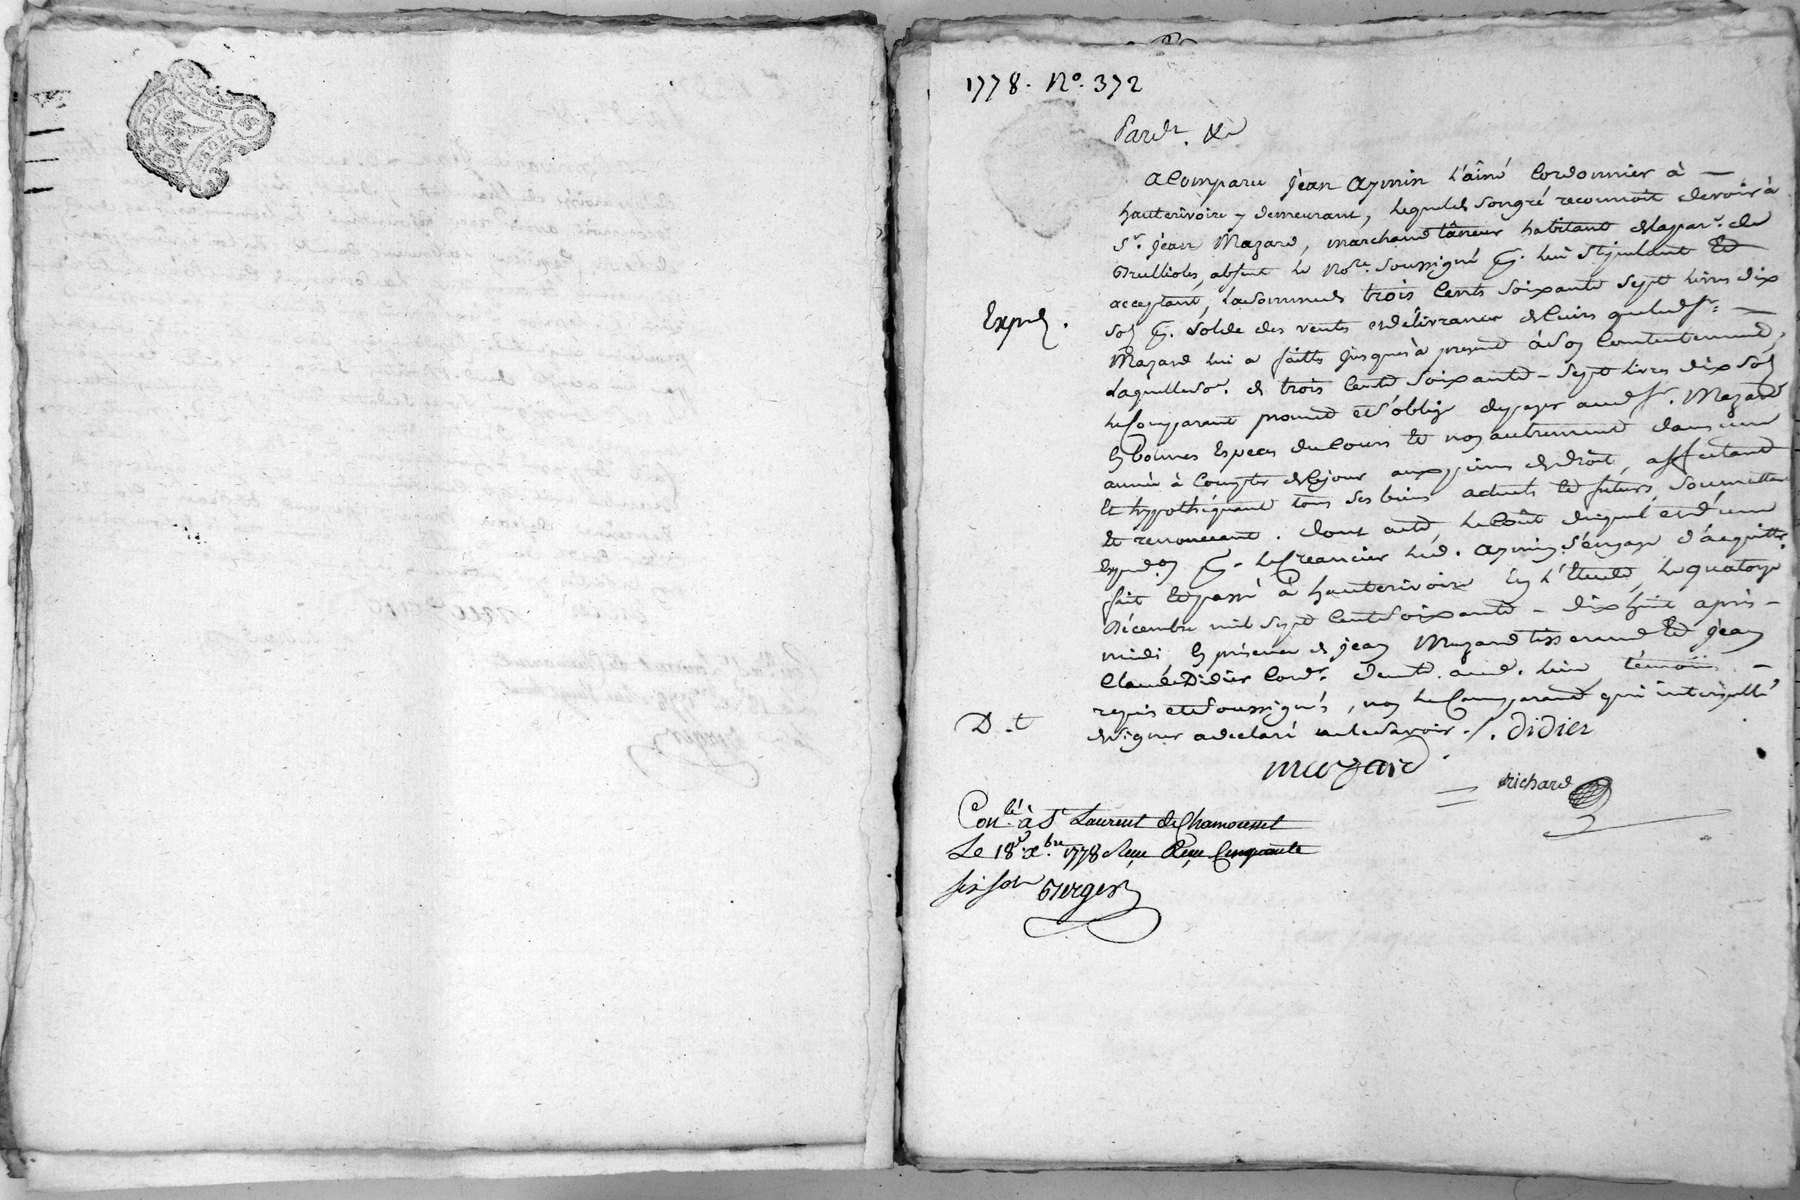 1778. No. 372
Pardt. &a
a Comparu jean aymin L'aîné Cordonnier à
hauterivoire y demeurant, lequel de son gré reconnoit devoir à
Sr. jean Mazard, marchand tâneur habitant de la par. de
Brullioles, absent le Nore. soussigné pr. lui stipulant et
acceptant, la somme de trois Cents soixante sept livres dix
Expd.
sols pr. solde des vente et délivrance de Cuirs que led. Sr.
Mazard lui a faits jusques à present à son Contentement,
Laquelle so. de trois Cents soixante-sept livres dix sols
le Comparant promet et s'oblige de payer aud. Sr. Mazard
en bonnes Especes du Cours et non autrement dans une
année à Compter de ce jour aux peines de droit, affectant
et hypothéquant tous ses biens actuels et futurs, soumettant
et renonceant. Dont acte le Coût duquel et d'une
Expedon. pr. le Creancier led. aymin s'engage d'acquitter.
fait et passé à hauterivoire En l'Etude, le quatorze
Décembre mil sept Cents soixante-dix huit après-
midi En présence de jean Mazard tisserand et jean
Claude Didier Cordr. deme. aud. lieu témoins
requis et soussignés, non le Comparant qui interpellé
D.t
de signer a déclaré ne le savoir ./. didier
mazard
richard
Conlé. à St Laurent de Chamousset
Le 18e. xbre 1778 Reçu Cinquante
six sols Berger